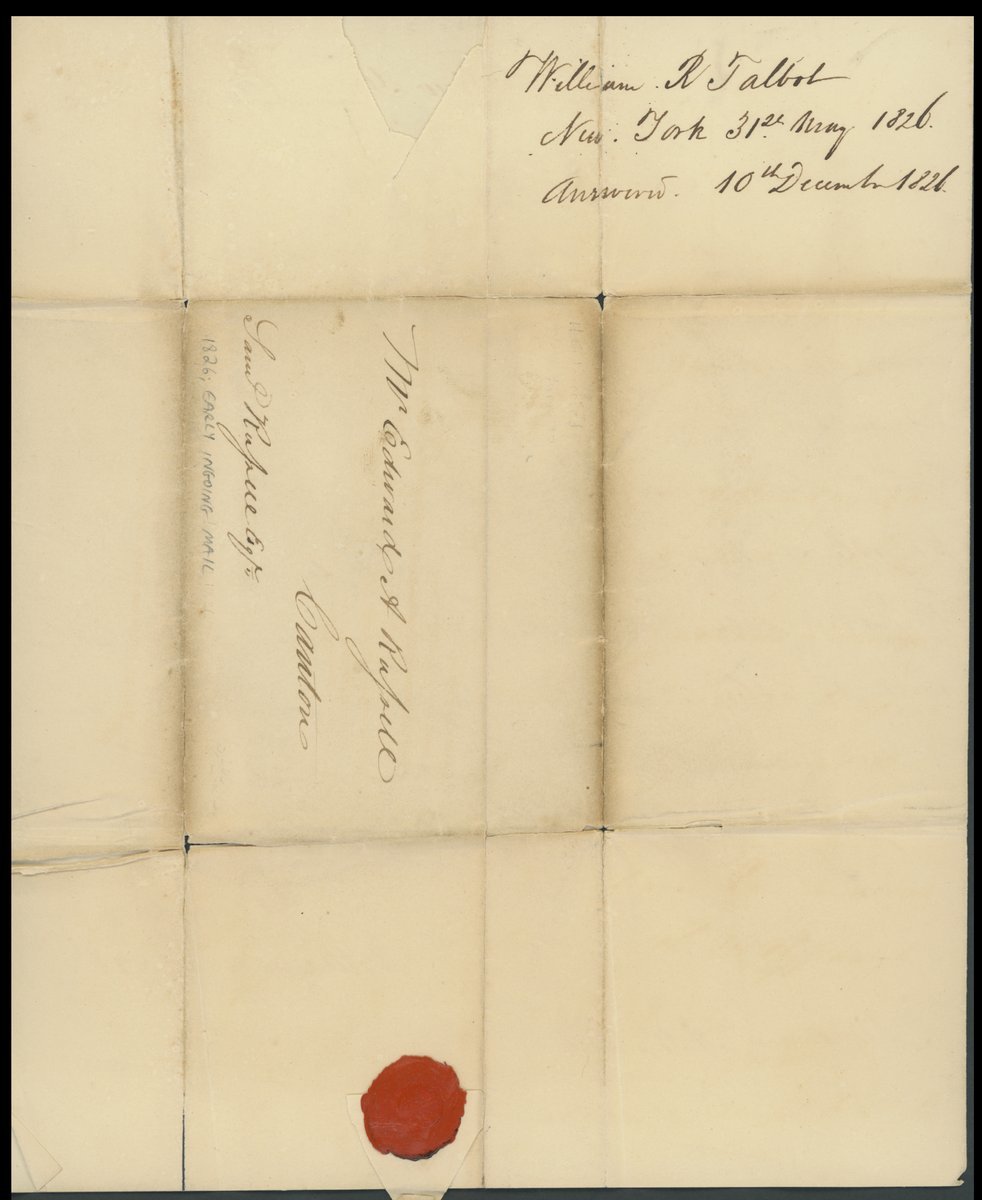 William R Talbot
New. York 31st May 1826.
Answered. 10th December 1826.
Mr Edward A
Canton
Saml Esqr
1826; EARLY INGOING MAIL